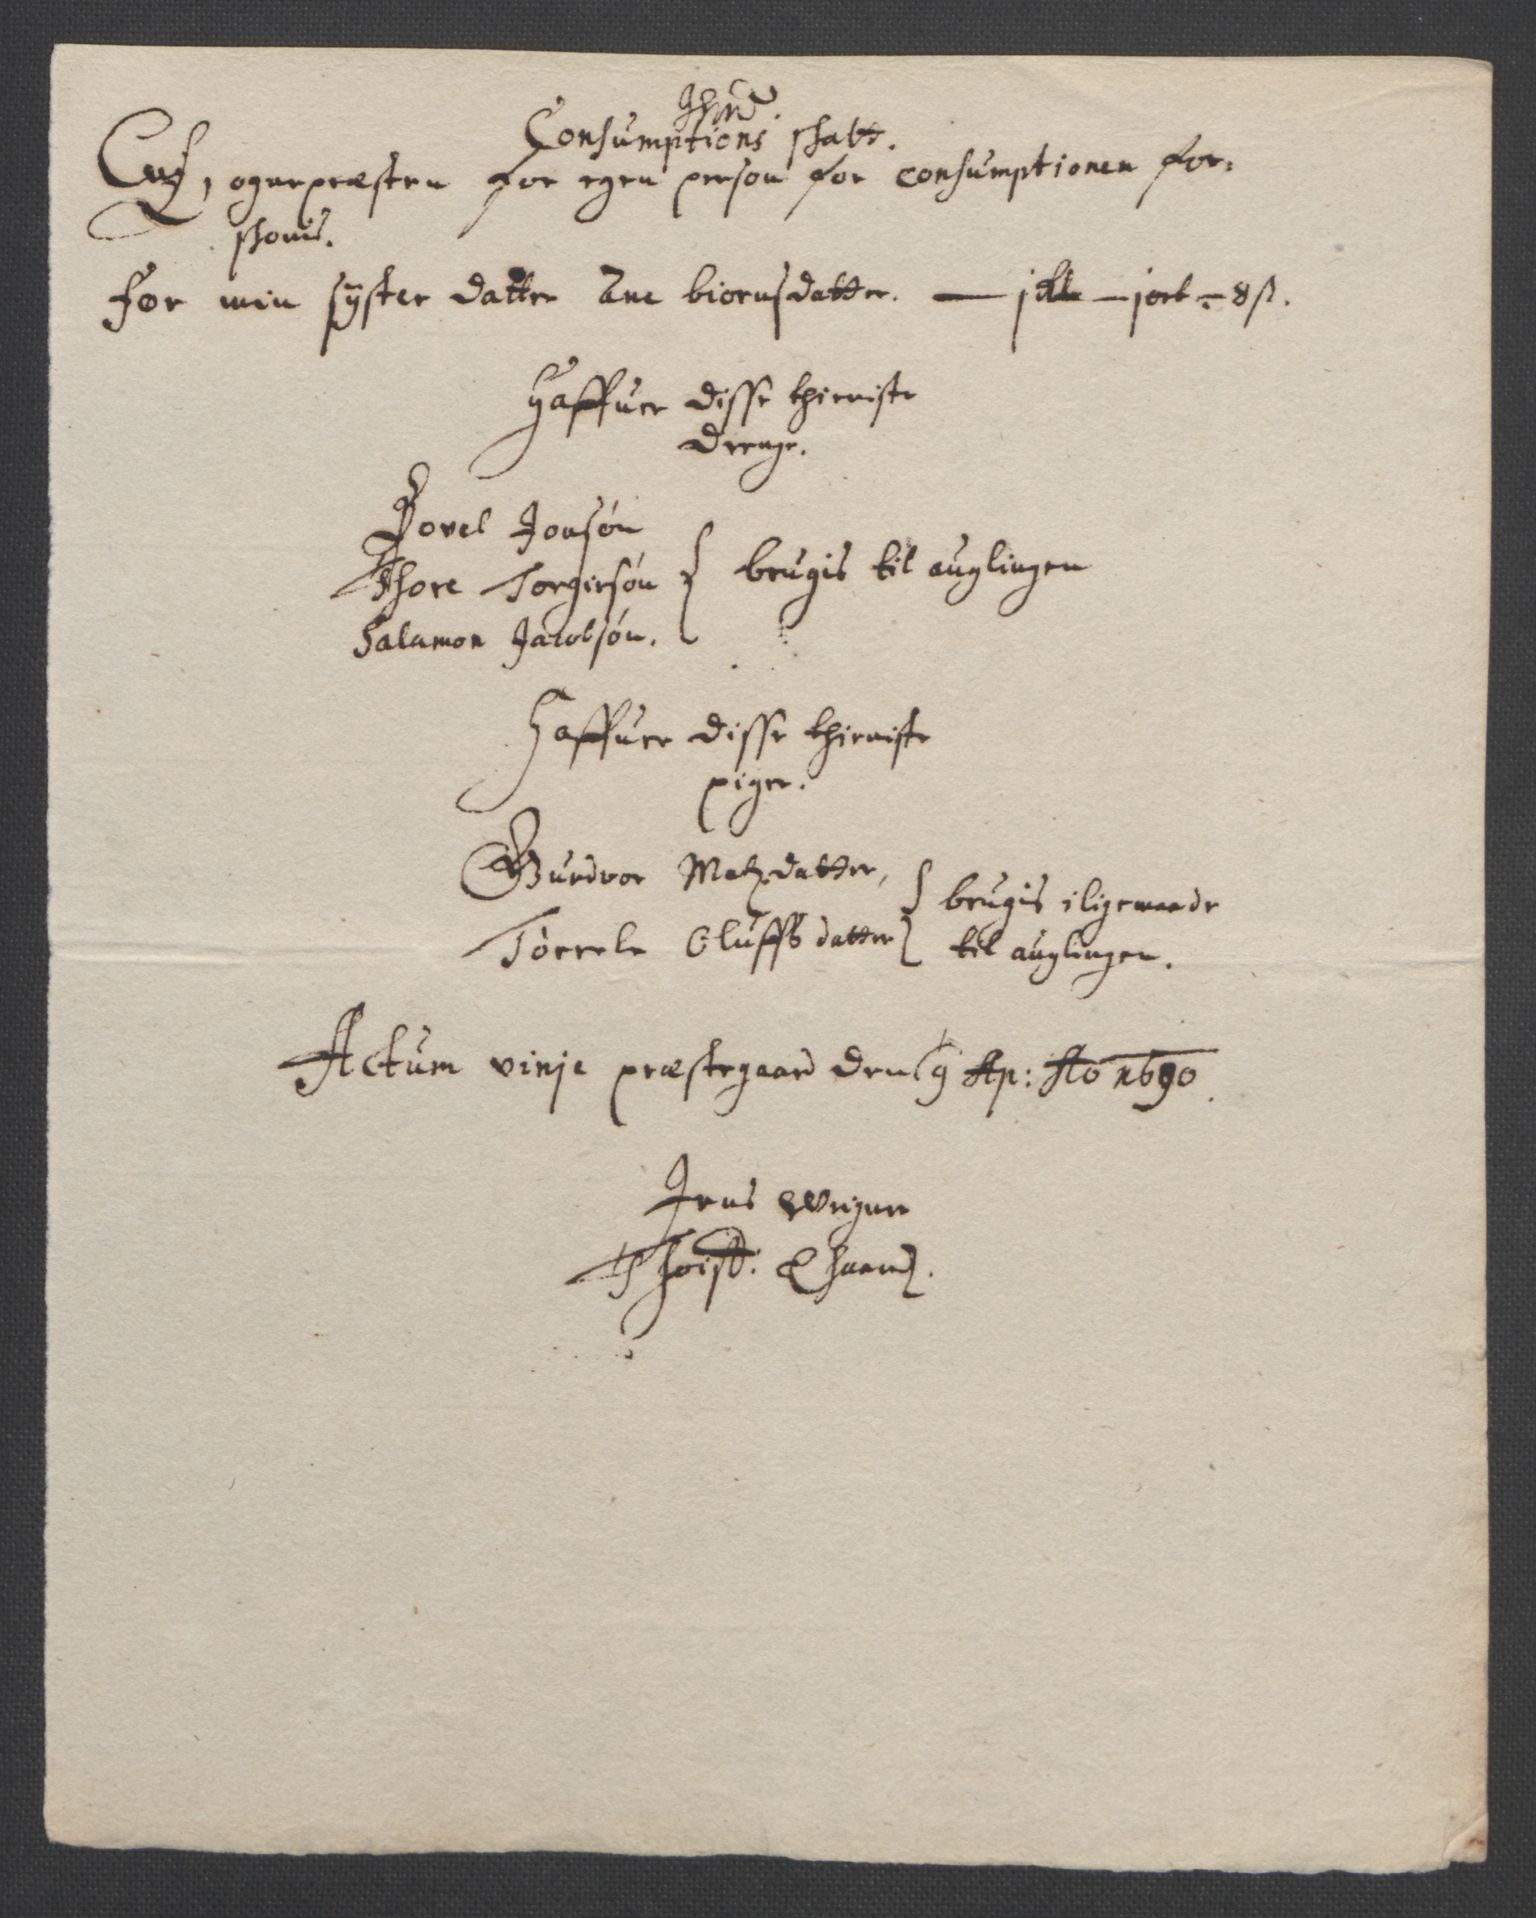 Consumptions schatt.
sognepræsten for egen person for consumptionen for:
schonis.
for min syster datter Ane biörnsdatter. — — jort – 8 sl.
Haffuer disse thieniste
drenge.
Povel Jonsøn
Thore Torgiersøn } brugis til auglingen
Salamon Jacobsøn.
Haffuer disse thieniste
piger.
Gurdvor Matzdatter, } brugis i ligemaade
Torrele Oluffs datter } til auglingen.
Actum vinje præstegaard den 9 Ap: Ao 1690.
Jens